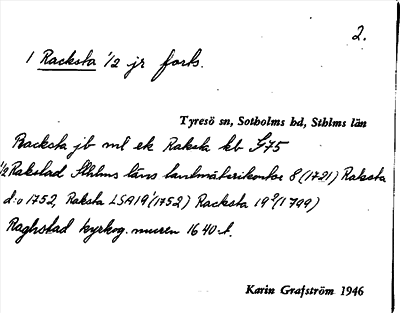 2.
1 Racksta 1/2 jr forts.
Tyresö sn, Sotholms hd, Sthlms län
Backsta jb ml ek Raksta kb S75
1/2 Rakstad Sthlms läns lantmäterikontor 8 (1721) Raksta
d:o 1752, Raksta LSA 19¹(1752) Racksta 19⁹(1799)
Raghstad kyrkog. muren 1640 t.
Karin Grafström 1946